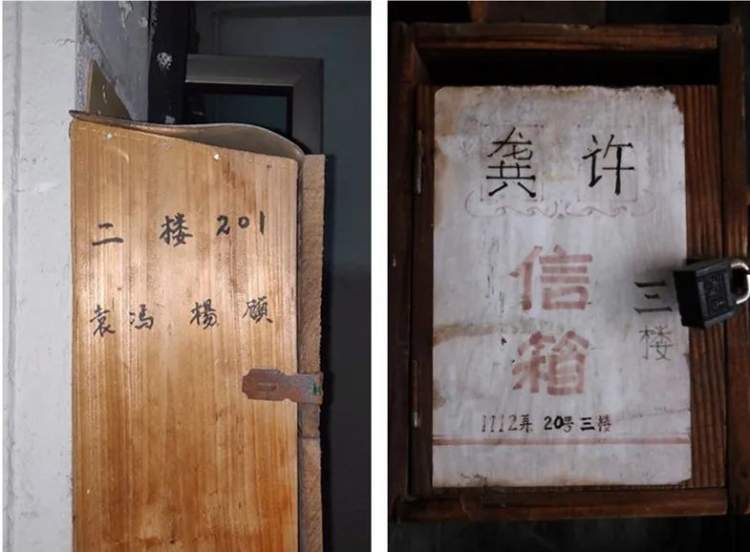 二楼201
袁冯杨顾
龚许
信箱
三楼
1112弄 20号三楼